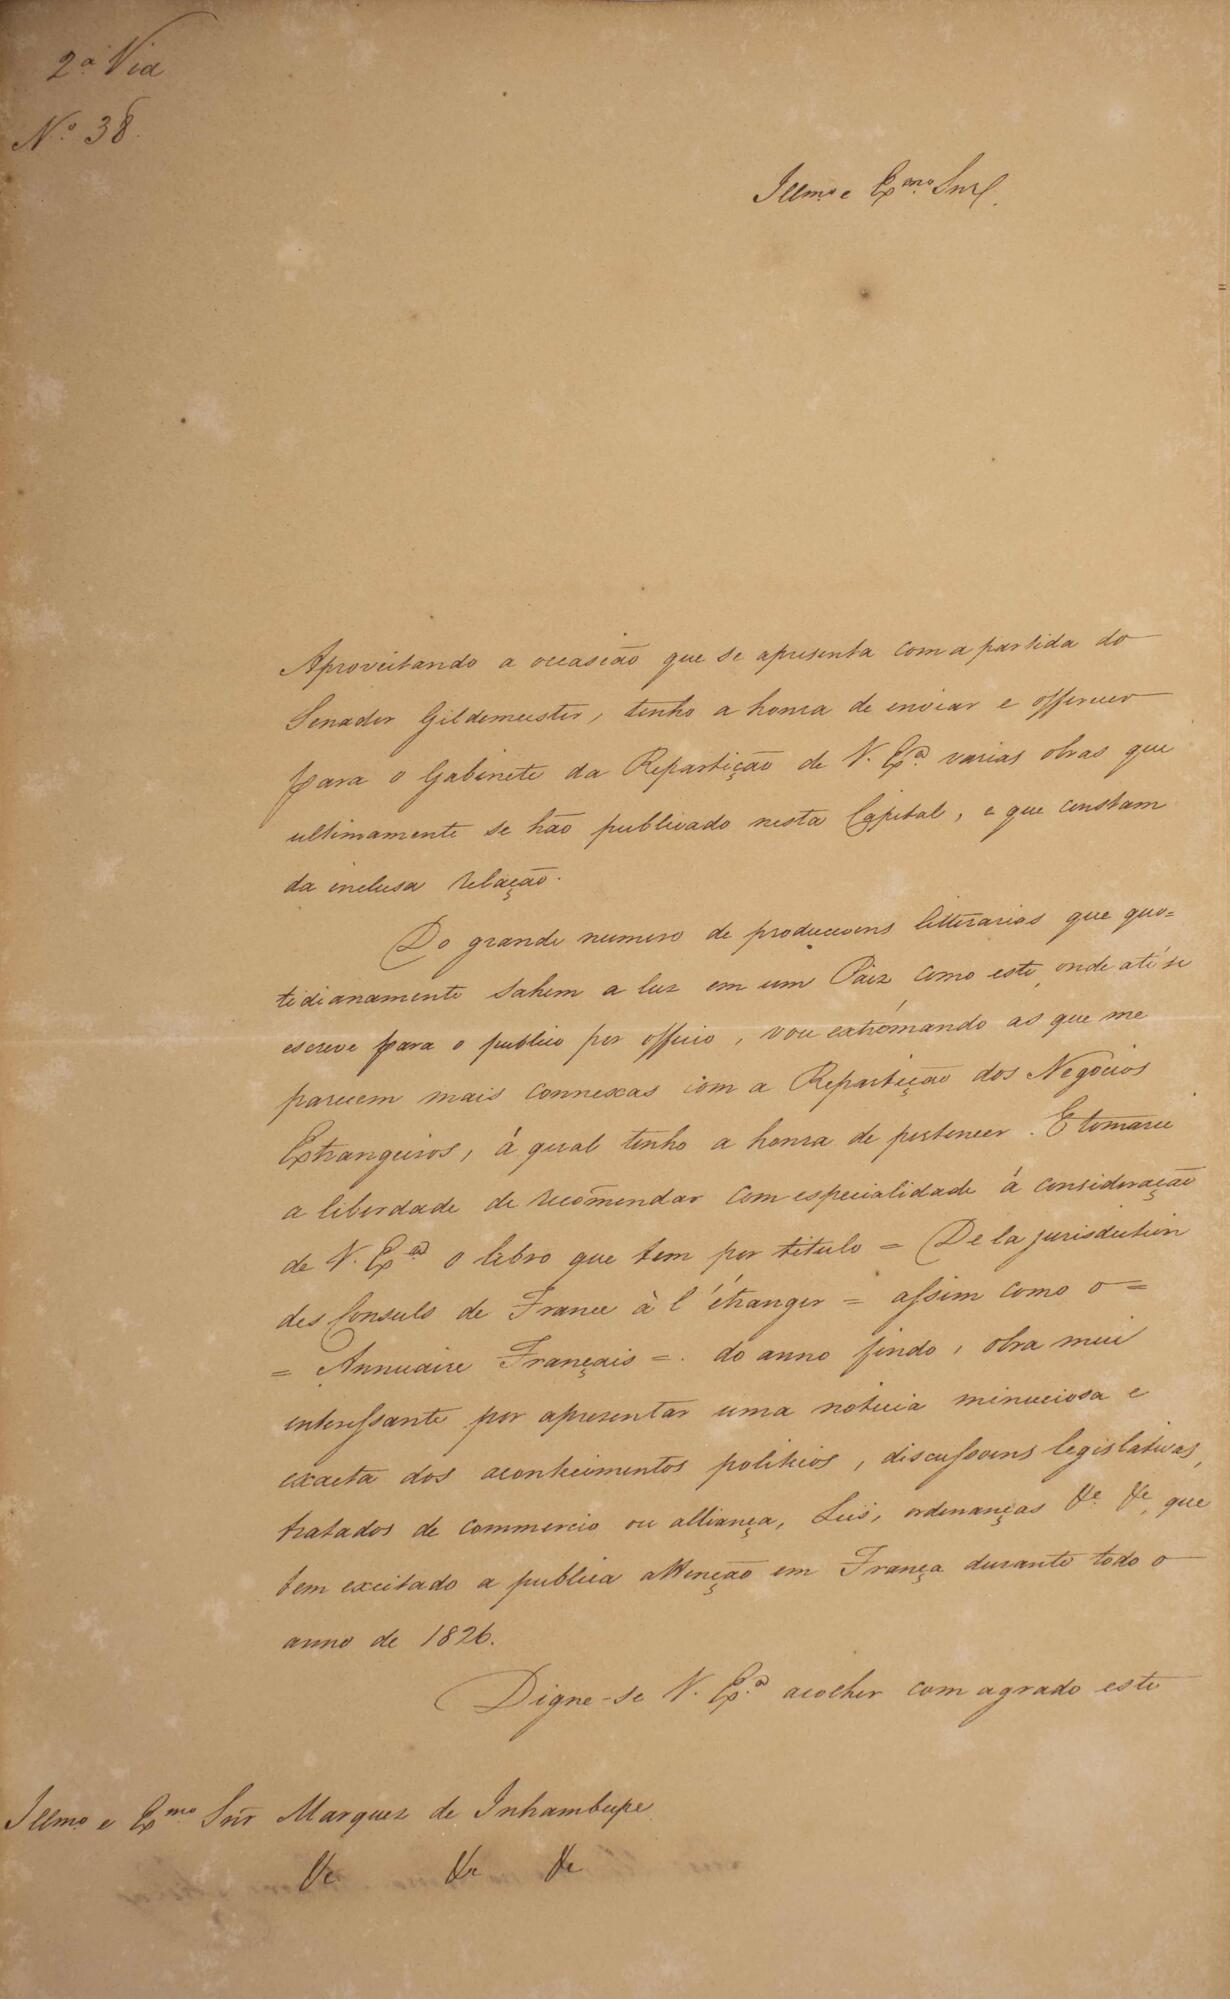 2ª Via
Nº 38.
Illmo e Exmo Snr.
Aproveitando a occasião que se apresenta com a partida do
Senador Gildemeister, tenho a honra de enviar e offerecer
para o Gabinete da Repartição de V. Exª varias obras que
ultimamente se hão publicado nesta Capital, e que constam
da inclusa relação.
Do grande numero de producçoens litterarias que quo=
tidianamente sahem a luz em um Paiz como este, onde até se
escreve para o publico por officio, vou extrémando as que me
parecem mais connexas com a Repartição dos Negocios
Extrangeiros, á qual tenho a honra de pertencer. E tomarei
a liberdade de recõmendar com especialidade á consideração
de V. Exª o libro que tem por titulo = De la jurisdiction
des Consuls de France à l'étranger = assim como o =
= Annuaire Français =. do anno findo, obra mui
interessante por apresentar uma noticia minuciosa e
exacta dos acontecimentos politicos, discussoens legislativas,
tratados de commercio ou alliança, Leis, ordenanças &c. &c, que
tem excitado a publica attenção em França durante todo o
anno de 1826.
Digne-se V. Exª acolher com agrado este
Illmo e Exmo Snr Marquez de Inhambupe
&c &c &c